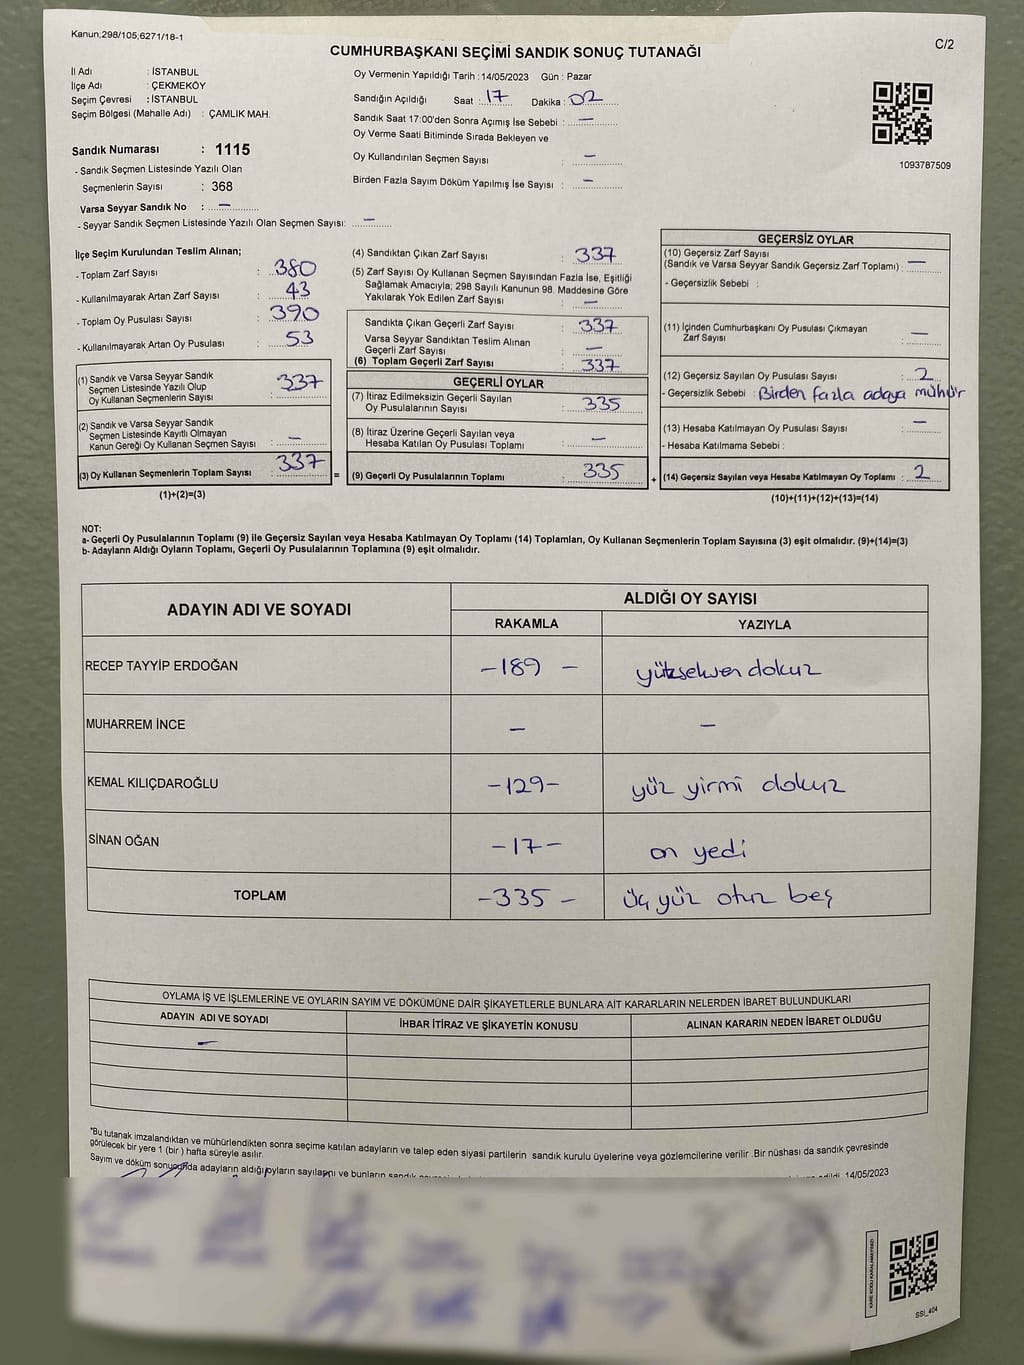 Kanun;298/105;6271/18-1
C/2
CUMHURBAŞKANI SEÇİMİ SANDIK SONUÇ TUTANAĞI
İl Adı : İSTANBUL
İlçe Adı : ÇEKMEKÖY
Seçim Çevresi : İSTANBUL
Seçim Bölgesi (Mahalle Adı) : ÇAMLIK MAH.
Sandık Numarası : 1115
- Sandık Seçmen Listesinde Yazılı Olan
Seçmenlerin Sayısı : 368
Varsa Seyyar Sandık No : —
- Seyyar Sandık Seçmen Listesinde Yazılı Olan Seçmen Sayısı: —
Oy Vermenin Yapıldığı Tarih :14/05/2023 Gün : Pazar
Sandığın Açıldığı Saat : 17 Dakika : 02
Sandık Saat 17:00'den Sonra Açımış İse Sebebi : —
Oy Verme Saati Bitiminde Sırada Bekleyen ve
Oy Kullandırılan Seçmen Sayısı —
Birden Fazla Sayım Döküm Yapılmış İse Sayısı : —
1093787509
İlçe Seçim Kurulundan Teslim Alınan;
- Toplam Zarf Sayısı : 380
- Kullanılmayarak Artan Zarf Sayısı : 43
- Toplam Oy Pusulası Sayısı : 390
- Kullanılmayarak Artan Oy Pusulası : 53
(1) Sandık ve Varsa Seyyar Sandık
Seçmen Listesinde Yazılı Olup
Oy Kullanan Seçmenlerin Sayısı : 337
(2) Sandık ve Varsa Seyyar Sandık
Seçmen Listesinde Kayıtlı Olmayan
Kanun Gereği Oy Kullanan Seçmen Sayısı : —
(3) Oy Kullanan Seçmenlerin Toplam Sayısı : 337 =
(1)+(2)=(3)
(4) Sandıktan Çıkan Zarf Sayısı : 337
(5) Zarf Sayısı Oy Kullanan Seçmen Sayısından Fazla İse, Eşitliği
Sağlamak Amacıyla; 298 Sayılı Kanunun 98. Maddesine Göre
Yakılarak Yok Edilen Zarf Sayısı : —
Sandıkta Çıkan Geçerli Zarf Sayısı : 337
Varsa Seyyar Sandıktan Teslim Alınan
Geçerli Zarf Sayısı : —
(6) Toplam Geçerli Zarf Sayısı : 337
GEÇERLİ OYLAR
(7) İtiraz Edilmeksizin Geçerli Sayılan
Oy Pusulalarının Sayısı : 335
(8) İtiraz Üzerine Geçerli Sayılan veya
Hesaba Katılan Oy Pusulası Toplamı : —
(9) Geçerli Oy Pusulalarının Toplamı : 335 +
GEÇERSİZ OYLAR
(10) Geçersiz Zarf Sayısı
(Sandık ve Varsa Seyyar Sandık Geçersiz Zarf Toplamı) : —
- Geçersizlik Sebebi :
(11) İçinden Cumhurbaşkanı Oy Pusulası Çıkmayan
Zarf Sayısı : —
(12) Geçersiz Sayılan Oy Pusulası Sayısı : 2
- Geçersizlik Sebebi : Birden fazla adaya mühür
(13) Hesaba Katılmayan Oy Pusulası Sayısı : —
- Hesaba Katılmama Sebebi :
(14) Geçersiz Sayılan veya Hesaba Katılmayan Oy Toplamı : 2
(10)+(11)+(12)+(13)=(14)
NOT:
a- Geçerli Oy Pusulalarının Toplamı (9) ile Geçersiz Sayılan veya Hesaba Katılmayan Oy Toplamı (14) Toplamları, Oy Kullanan Seçmenlerin Toplam Sayısına (3) eşit olmalıdır. (9)+(14)=(3)
b- Adayların Aldığı Oyların Toplamı, Geçerli Oy Pusulalarının Toplamına (9) eşit olmalıdır.
ADAYIN ADI VE SOYADI ALDIĞI OY SAYISI
RAKAMLA YAZIYLA
RECEP TAYYİP ERDOĞAN -189 - yüzseksen dokuz
MUHARREM İNCE — —
KEMAL KILIÇDAROĞLU -129- yüz yirmi dokuz
SİNAN OĞAN -17- on yedi
TOPLAM -335 - üç yüz otuz beş
OYLAMA İŞ VE İŞLEMLERİNE VE OYLARIN SAYIM VE DÖKÜMÜNE DAİR ŞİKAYETLERLE BUNLARA AİT KARARLARIN NELERDEN İBARET BULUNDUKLARI
ADAYIN ADI VE SOYADI İHBAR İTİRAZ VE ŞİKAYETİN KONUSU ALINAN KARARIN NEDEN İBARET OLDUĞU
—
"Bu tutanak imzalandıktan ve mühürlendikten sonra seçime katılan adayların ve talep eden siyasi partilerin sandık kurulu üyelerine veya gözlemcilerine verilir .Bir nüshası da sandık çevresinde
görülecek bir yere 1 (bir ) hafta süreyle asılır.
Sayım ve döküm sonucunda adayların aldığı oyların sayılarını ve bunların 14/05/2023
KARE KODU KARALAMAYINIZ!
SSI_404